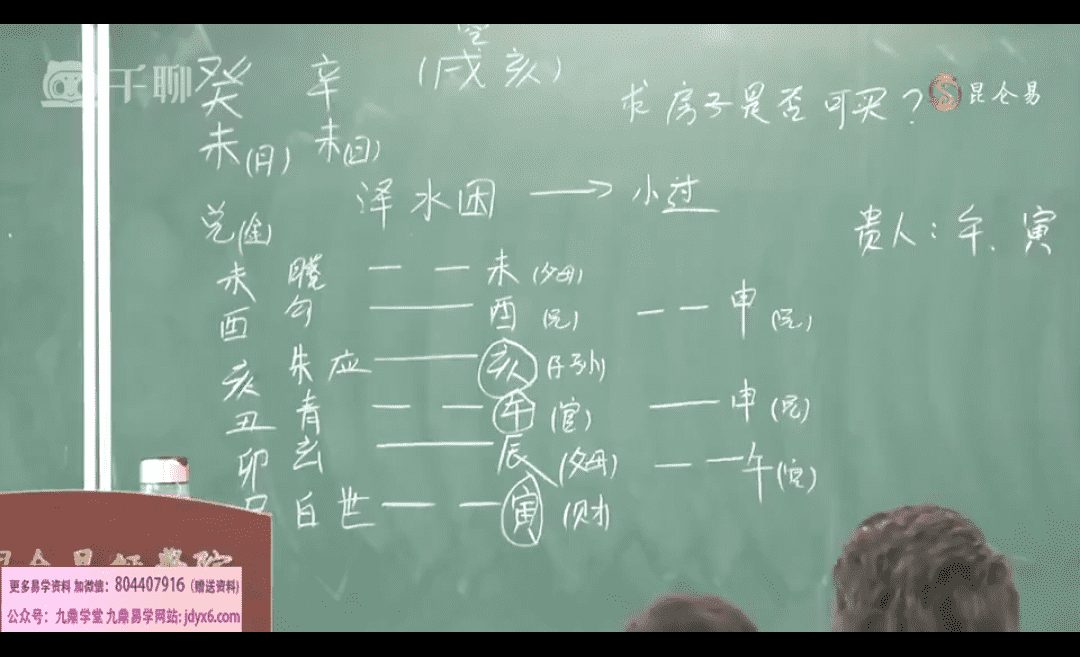 千聊
空
癸 辛 (戌亥)
求房子是否可买？
昆仑易
未(月) 未(日)
泽水困 → 小过
贵人：午、寅
兑(金)
未 螣 未(父母)
酉 勾 酉(兄) 申(兄)
亥 朱 应 亥(子孙)
丑 青 午(官) 申(兄)
卯 玄 辰(父母) 午(官)
白 世 寅(财)
更多易学资料 加微信：804407916（赠送资料)
公众号：九鼎学堂 九鼎易学网站: jdyx6.com